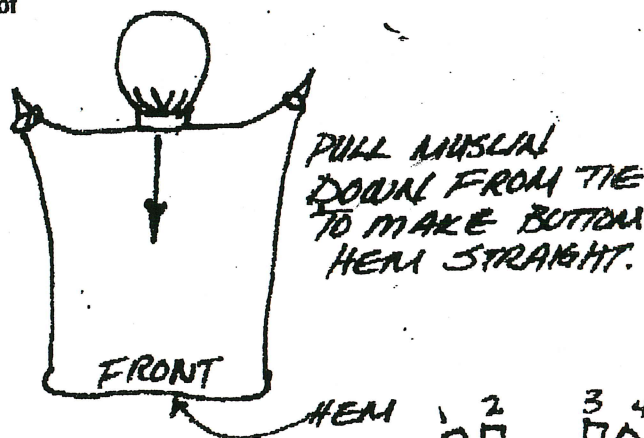 of
PULL MUSLIN
DOWN FROM TIE
TO MAKE BOTTOM
HEM STRAIGHT.
FRONT
HEM
1 2 3 4